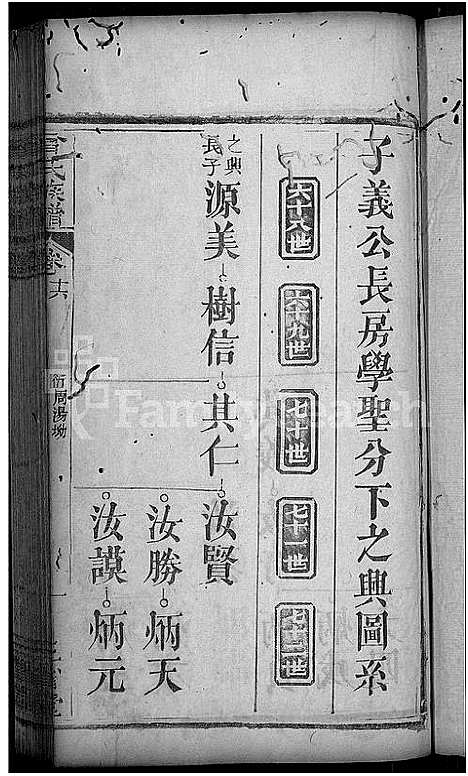 子義公長房學聖分下之興圖系
六十八世
六十九世
七十世
七十一世
七十二世
之興長子
源美
樹信
其仁
汝賢
汝勝
炳天
汝謨
炳元
氏族譜
卷
衍周湯坳
FamilySearch